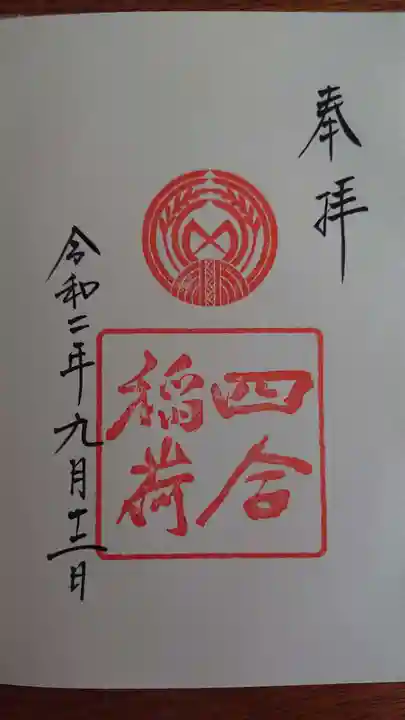 奉拝
四合
稲荷
令和二年九月十二日